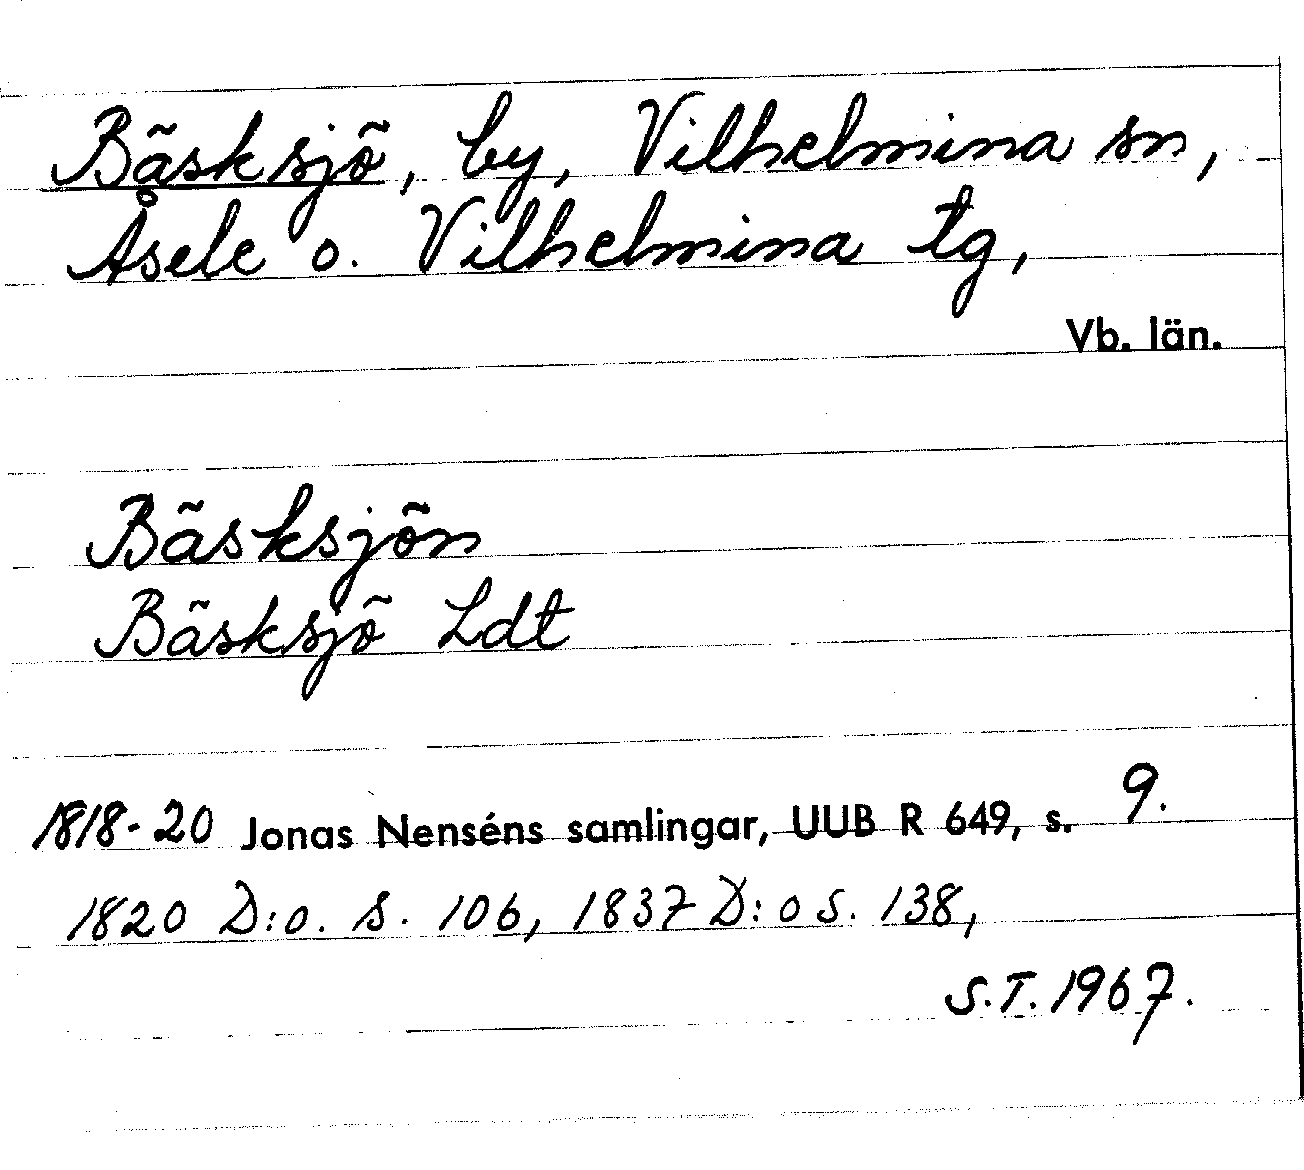 Bäsksjö, by, Vilhelmina sn,
Åsele o. Vilhelmina tg,
Vb. län.
Bäsksjön
Bäsksjö Ldt
1818-20 Jonas Nenséns samlingar, UUB R 649, s. 9.
1820 D:o. S. 106, 1837 D:o S. 138,
S.T. 1967.